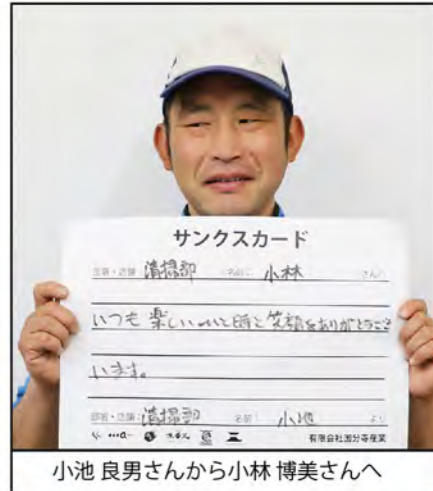 サンクスカード
部署・店舗： 清掃部 名前： 小林 さんへ
いつも 楽しい ひと時と 笑顔をありがとうござ
います。
部署・店舗： 清掃部 名前： 小池 より
有限会社国分寺産業
小池 良男さんから小林 博美さんへ